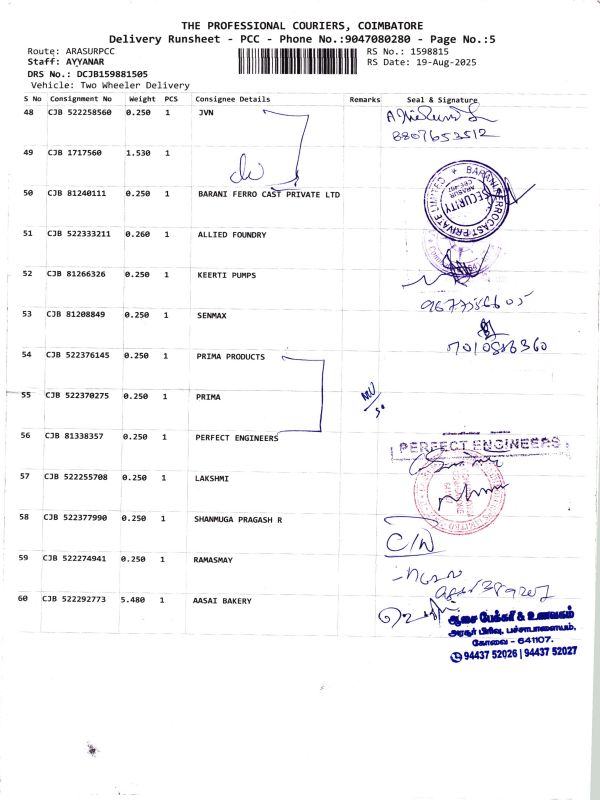 THE PROFESSIONAL COURIERS, COIMBATORE
Delivery Runsheet - PCC - Phone No.:9047080280 - Page No.:5
Route: ARASURPCC
RS No.: 1598815
Staff: AYYANAR
RS Date: 19-Aug-2025
DRS No.: DCJB159881505
Vehicle: Two Wheeler Delivery
S No Consignment No Weight PCS Consignee Details Remarks Seal & Signature
48 CJB 522258560 0.250 1 JVN
8807653512
49 CJB 1717560 1.530 1
50 CJB 81240111 0.250 1 BARANI FERRO CAST PRIVATE LTD
BARANI FERROCAST PRIVATE LIMITED
SECURITY
ARASUR
51 CJB 522333211 0.260 1 ALLIED FOUNDRY
52 CJB 81266326 0.250 1 KEERTI PUMPS
53 CJB 81208849 0.250 1 SENMAX
54 CJB 522376145 0.250 1 PRIMA PRODUCTS
55 CJB 522370275 0.250 1 PRIMA
56 CJB 81338357 0.250 1 PERFECT ENGINEERS
PERFECT ENGINEERS
57 CJB 522255708 0.250 1 LAKSHMI
58 CJB 522377990 0.250 1 SHANMUGA PRAGASH R
59 CJB 522274941 0.250 1 RAMASMAY
60 CJB 522292773 5.480 1 AASAI BAKERY
ஆசை பேக்கரி & உணவகம்
அரசூர் பிரிவு, பச்சாபாளையம்,
கோவை - 641107.
94437 52026 | 94437 52027